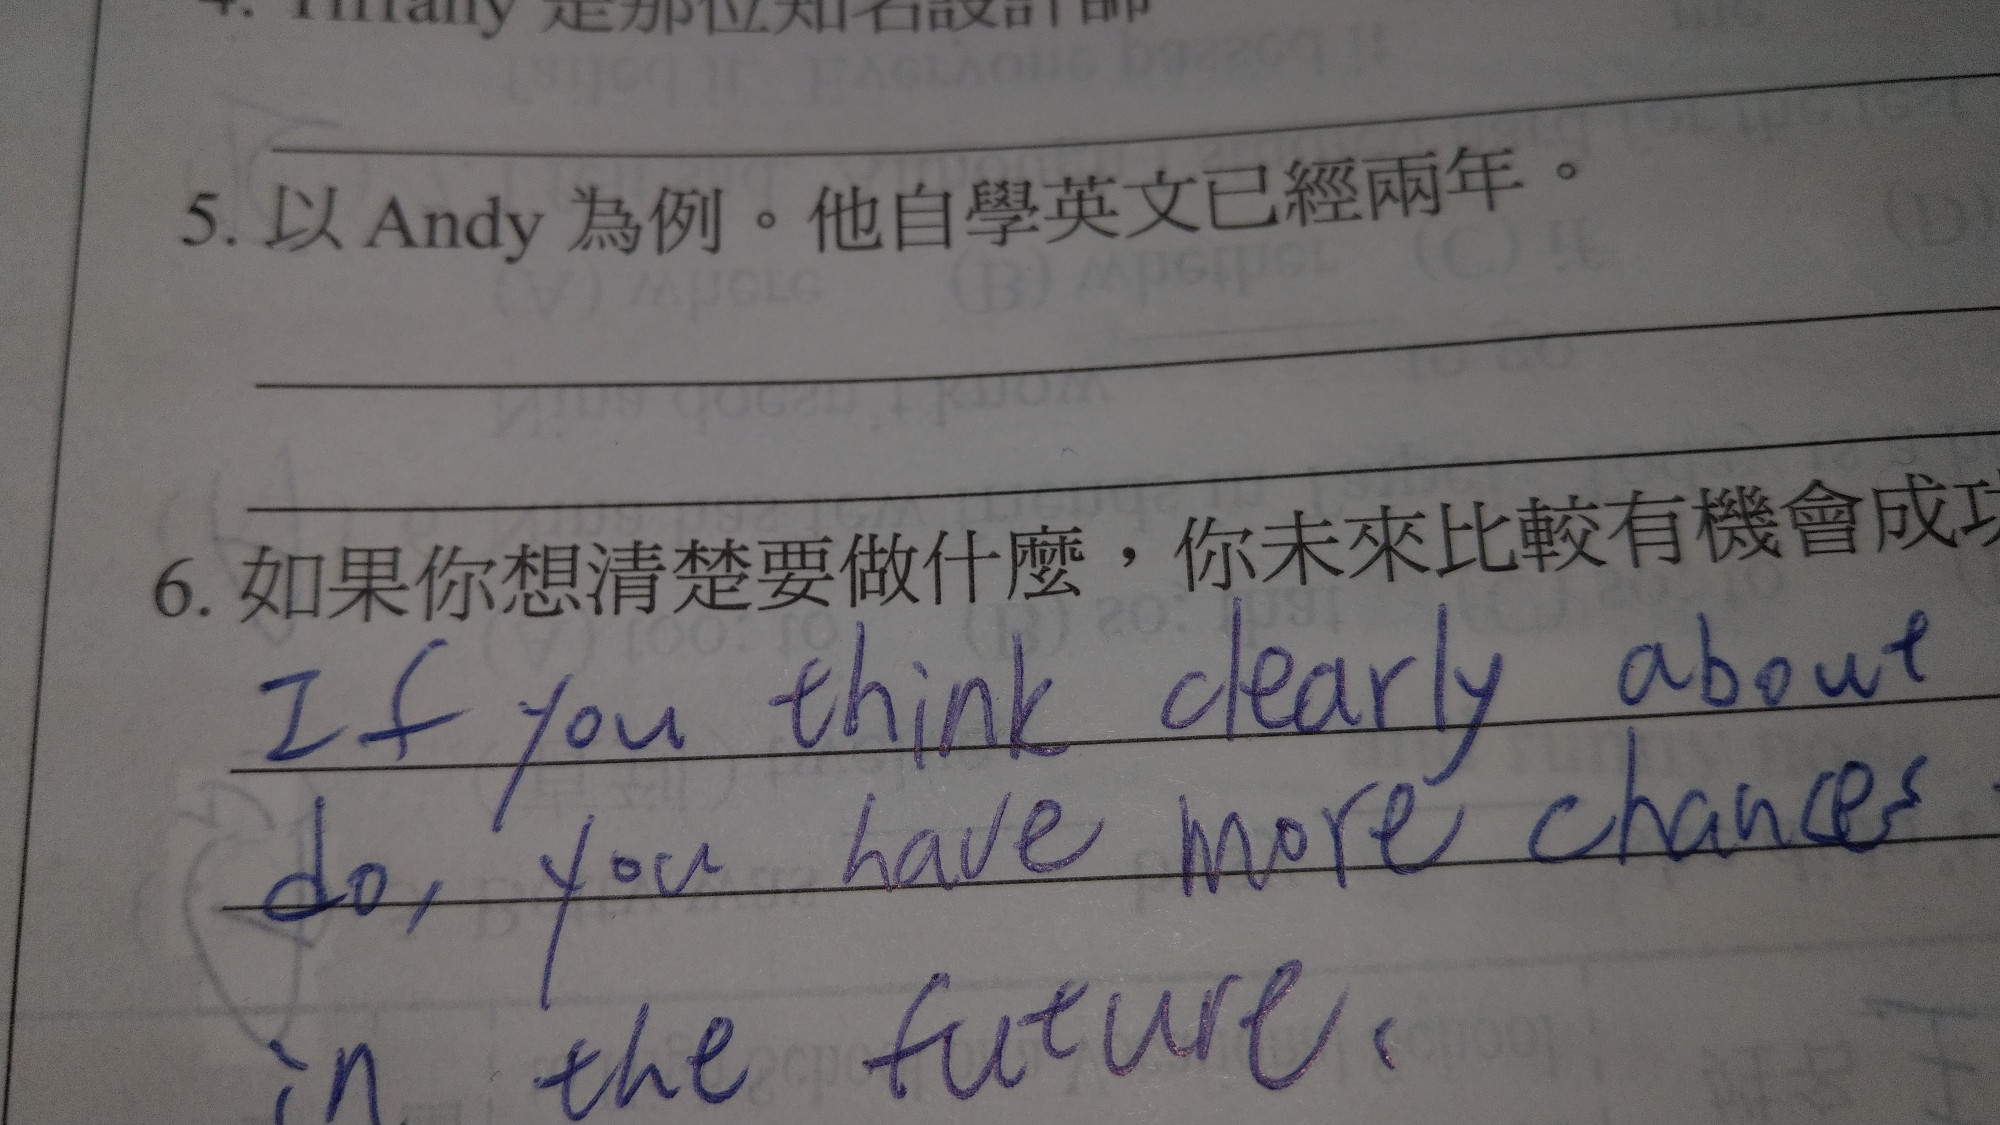 4. Tiffany 是那位知名設計師
5. 以 Andy 為例。他自學英文已經兩年。
6. 如果你想清楚要做什麼，你未來比較有機會成功
If you think clearly about
do, you have more chances
in the future.